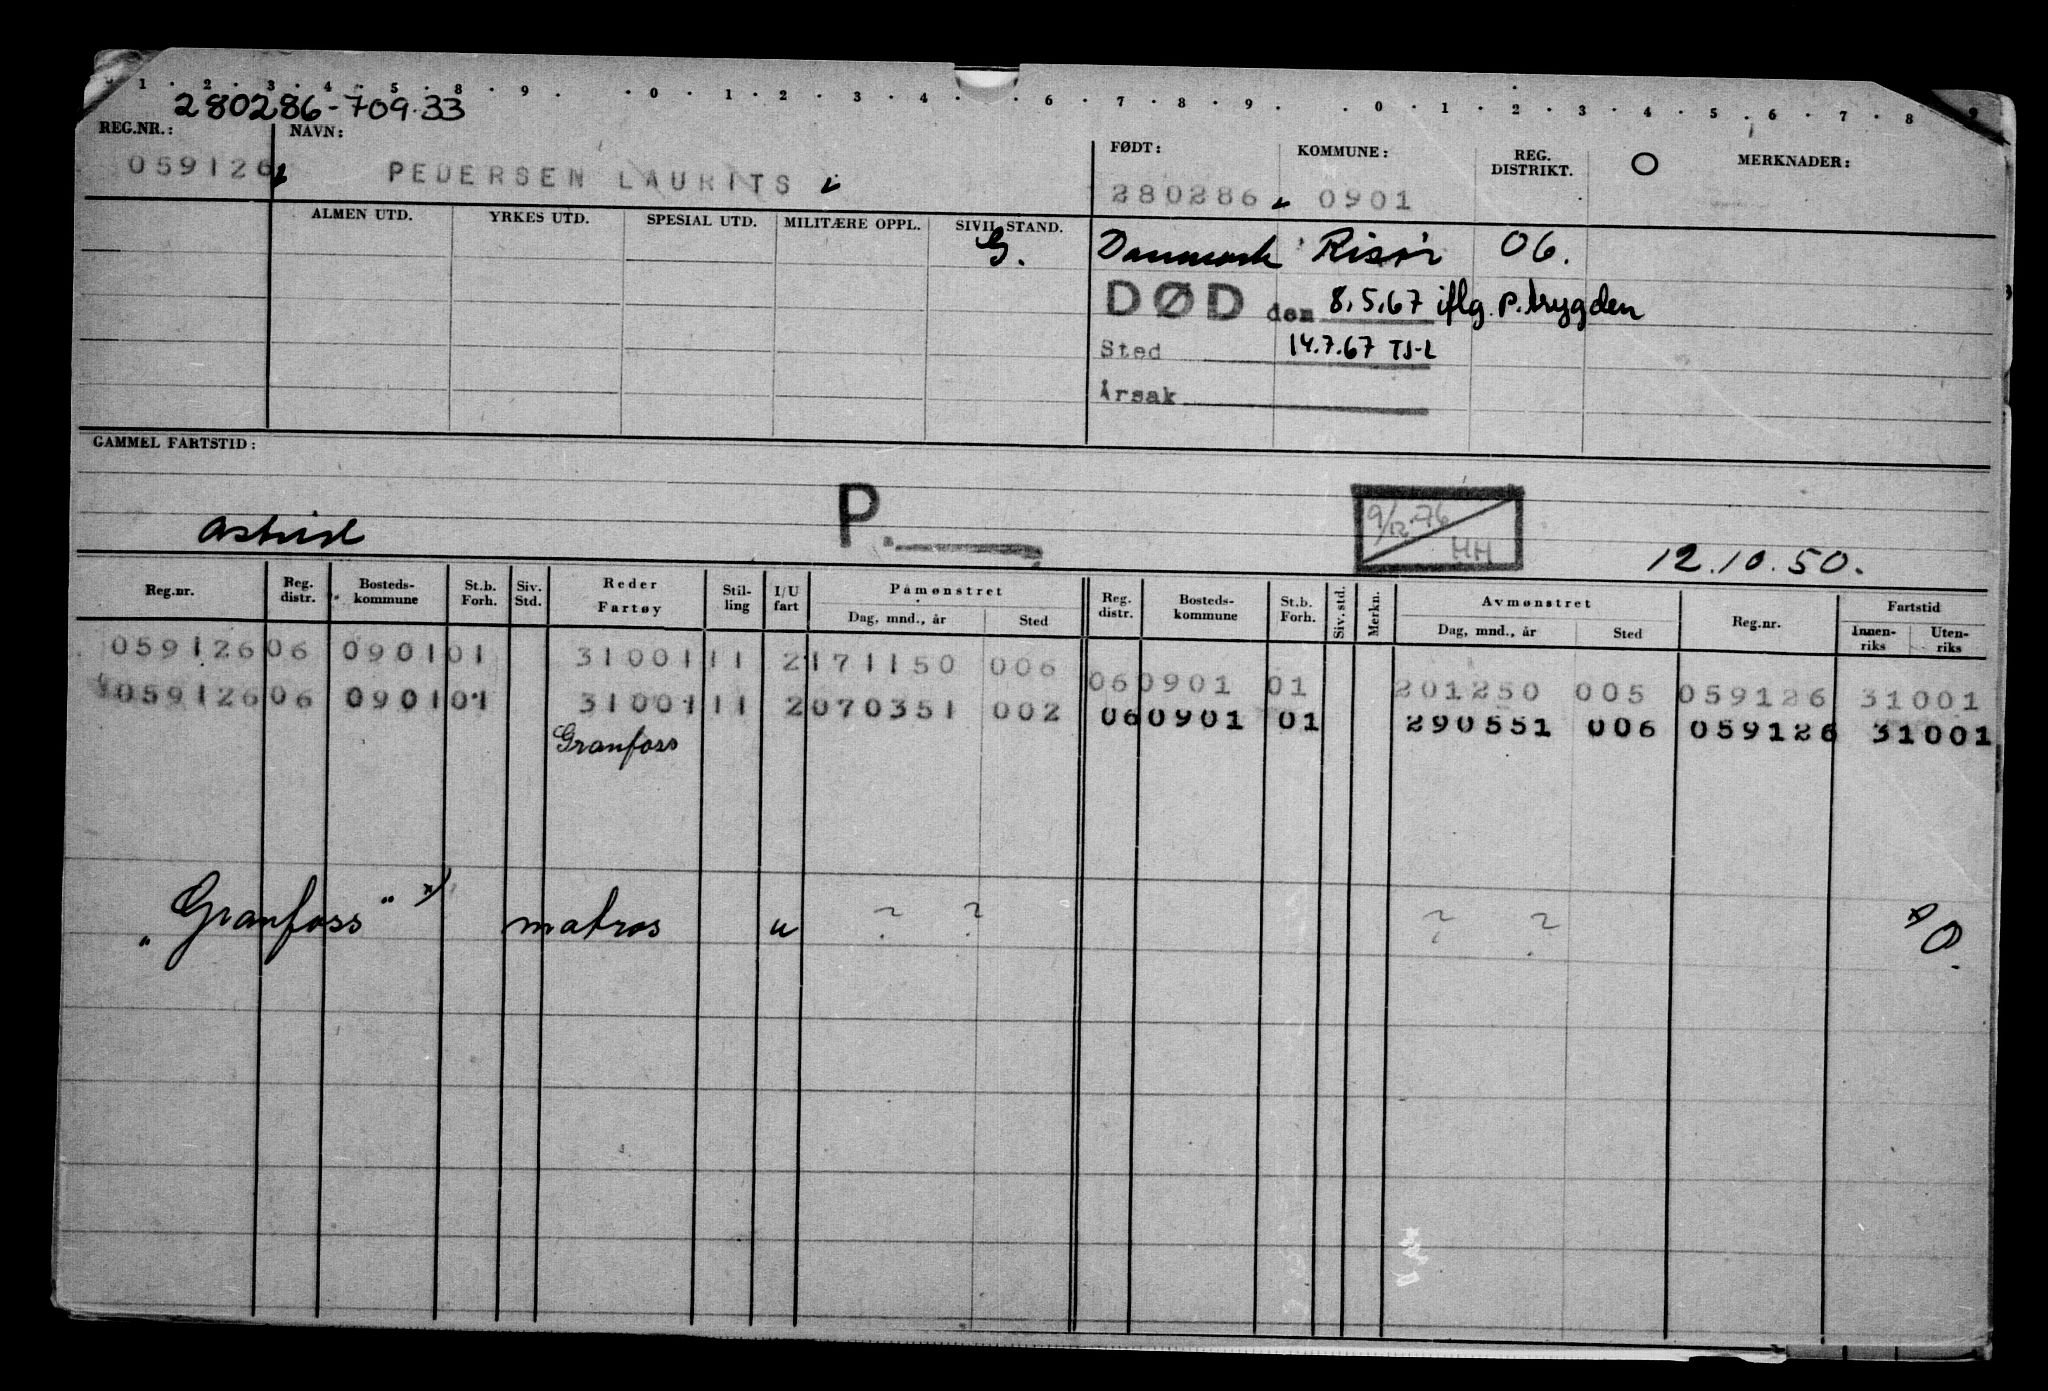 1 · 2 · 3 · 4 · 5 · 8 · 9 · · 0 · 1 · 2 · 3 · 4 · · 6 · 7 · 8 · 9 · · 0 · 1 · 2 · 3 · 4 · 5 · 6 · 7 · 8 · 9
280286-709.33
REG.NR.: NAVN: FØDT: KOMMUNE: REG. DISTRIKT. O MERKNADER:
059126 PEDERSEN LAURITS 280286 0901
ALMEN UTD. YRKES UTD. SPESIAL UTD. MILITÆRE OPPL. SIVIL STAND.
G. Danmark Risør 06.
DØD den 8.5.67 iflg. p.trygden
Sted 14.7.67 TJ-L
Årsak
GAMMEL FARTSTID:
Astrid P. 9/12-76 HH 12.10.50.
Reg.nr. Reg. distr. Bosteds-kommune St.b. Forh. Siv. Std. Reder Fartøy Stil-ling I/U fart Påmønstret Dag, mnd., år Sted Reg. distr. Bosteds-kommune St.b. Forh. Siv. std. Merkn. Avmønstret Dag, mnd., år Sted Reg.nr. Fartstid Innen-riks Uten-riks
059126 06 0901 01 31001 11 2 171150 006 06 0901 01 201250 005 059126 31001
059126 06 0901 01 31001 11 2 070351 002 06 0901 01 290551 006 059126 31001
Granfoss
"Granfoss" x) matros u ? ? ? ? x O.